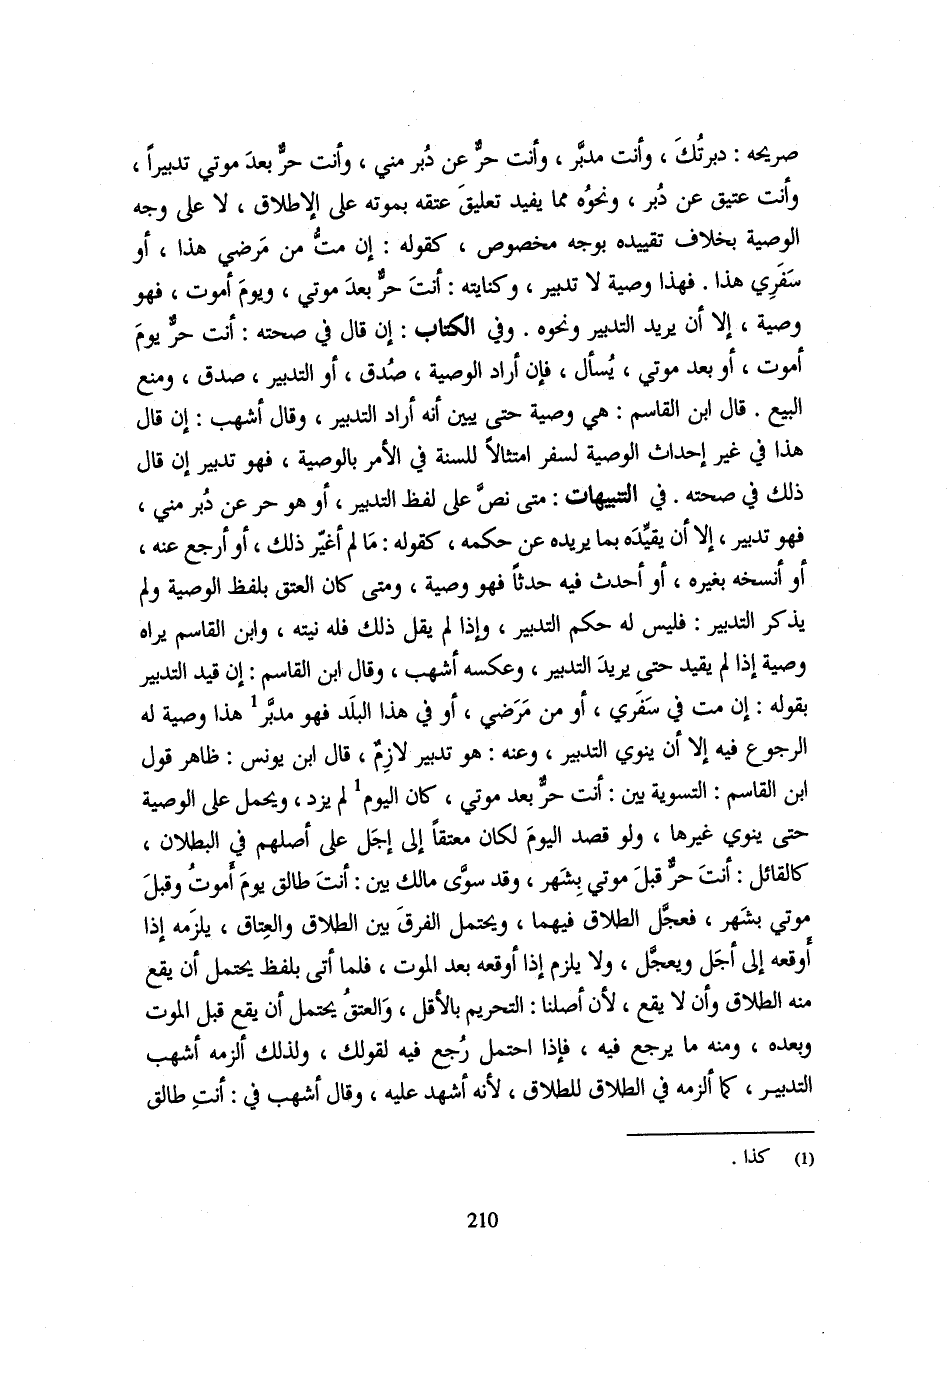 صريحه : دبرتُكَ ، وأنت مدبَّر ، وأنت حرٌّ عن دُبر مني ، وأنت حرٌّ بعدَ موتي تدبيراً ،
وأنت عتيق عن دُبر ، ونحوُه مما يفيد تعليقَ عتقه بموته على الإطلاق ، لا على وجه
الوصية بخلاف تقييده بوجه مخصوص ، كقوله : إن متُّ من مَرضي هذا ، أو
سَفَرِي هذا . فهذا وصية لا تدبير ، وكنايته : أنتَ حرٌّ بعدَ موتي ، ويومَ أموت ، فهو
وصية ، إلا أن يريد التدبير ونحوه . وفي الكتاب : إن قال في صحته : أنت حرٌّ يومَ
أموت ، أو بعد موتي ، يُسأل ، فإن أراد الوصية ، صُدق ، أو التدبير ، صدق ، ومنع
البيع . قال ابن القاسم : هي وصية حتى يبين أنه أراد التدبير ، وقال أشهب : إن قال
هذا في غير إحداث الوصية لسفر امتثالاً للسنة في الأمر بالوصية ، فهو تدبير إن قال
ذلك في صحته . في التنبيهات : متى نصَّ على لفظ التدبير ، أو هو حر عن دُبر مني ،
فهو تدبير ، إلا أن يقيِّدَه بما يريده عن حكمه ، كقوله : مَا لم أغيّر ذلك ، أو أرجع عنه ،
أو أنسخه بغيره ، أو أحدث فيه حدثاً فهو وصية ، ومتى كان العتق بلفظ الوصية ولم
يذكر التدبير : فليس له حكم التدبير ، وإذا لم يقل ذلك فله نيته ، وابن القاسم يراه
وصية إذا لم يقيد حتى يريدَ التدبير ، وعكسه أشهب ، وقال ابن القاسم : إن قيد التدبير
بقوله : إن مت في سَفَري ، أو من مَرَضي ، أو في هذا البلَد فهو مدبَّر1 هذا وصية له
الرجوع فيه إلا أن ينوي التدبير ، وعنه : هو تدبير لازِمٌ ، قال ابن يونس : ظاهر قول
ابن القاسم : التسوية بين : أنت حرٌّ بعد موتي ، كان اليوم1 لم يزد ، ويحمل على الوصية
حتى ينوي غيرها ، ولو قصد اليومَ لكان معتقاً إلى إجَل على أصلهم في البطلان ،
كالقائل : أنتَ حرٌّ قبلَ موتي بِشَهر ، وقد سوَّى مالك بين : أنتَ طالق يومَ أَموتُ وقبلَ
موتي بشَهر ، فعجَّل الطلاق فيهما ، ويحتمل الفرقَ بين الطلاق والعِتاق ، يلزَمه إذا
أَوقعه إلى أجَل ويعجَّل ، ولا يلزم إذا أوقعه بعد الموت ، فلما أتى بلفظ يحتمل أن يقع
منه الطلاق وأن لا يقع ، لأن أصلنا : التحريم بالأقل ، وَالعتقُ يحتمل أن يقع قبل الموت
وبعده ، ومنه ما يرجع فيه ، فإذا احتمل رُجع فيه لقولك ، ولذلك ألزمه أشهب
التدبير ، كما ألزمه في الطلاق للطلاق ، لأنه أشهد عليه ، وقال أشهب في : أنتِ طالق
(1) كذا .
210